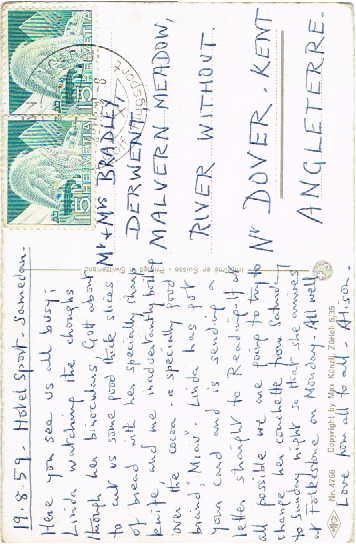 19.8.59. Hotel Sport - Samedan -
Here you see us all busy;
Linda watching the choughs
through her binoculars, Gott about
to cut us some good thick slices
of bread with her specially sharp
knife and me inadvertently boiling
over the cocoa - a specially good
brand; 'Miav'. Linda has got
your card and is sending a
letter straight to Reading. If at
all possible we are going to try to
change her couchette from Saturday
to Sunday night so that she arrives
at Folkestone on Monday. All well
Love from all to all - Alison -
Mr & Mrs BRADLEY,
DERWENT,
MALVERN MEADOW,
RIVER WITHOUT.
Nr DOVER. KENT
ANGLETERRE.
HELVETIA 15
HELVETIA 15
Imprimé en Suisse - Printed in Switzerland
Nr. 4766 Copyright by Max Künzli, Zürich 5/35